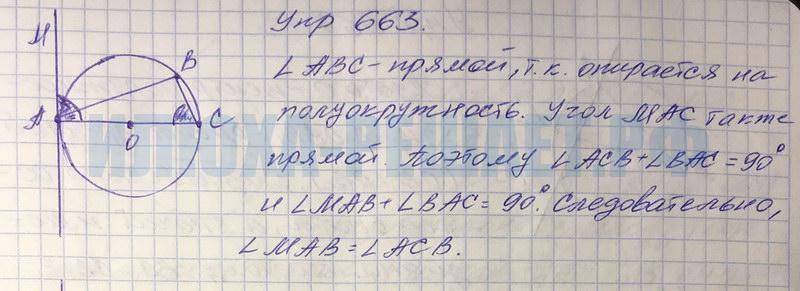 Упр 663.
∠ABC - прямой, т.к. опирается на
полуокружность. Угол MAC также
прямой. Поэтому ∠ACB+∠BAC=90°
и ∠MAB+∠BAC=90°. Следовательно,
∠MAB=∠ACB.
M
B
A
C
O